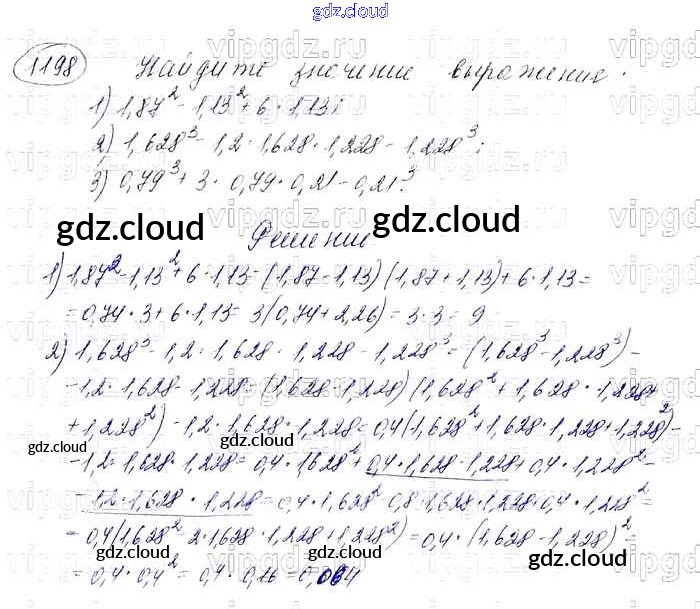 gdz.cloud
1198 Найдите значение выражения.
1) 1,87² - 1,13² + 6 · 1,13;
2) 1,628³ - 1,2 · 1,628 · 1,228 - 1,228³;
3) 0,79³ + 3 · 0,79 · 0,21 - 0,21³.
gdz.cloud gdz.cloud
Решение
1) 1,87² - 1,13² + 6 · 1,13 = (1,87 - 1,13)(1,87 + 1,13) + 6 · 1,13 =
= 0,74 · 3 + 6 · 1,13 = 3(0,74 + 2,26) = 3 · 3 = 9
2) 1,628³ - 1,2 · 1,628 · 1,228 - 1,228³ = (1,628³ - 1,228³) -
- 1,2 · 1,628 · 1,228 = (1,628 - 1,228)(1,628² + 1,628 · 1,228 +
+ 1,228²) - 1,2 · 1,628 · 1,228 = 0,4(1,628² + 1,628 · 1,228 + 1,228²) -
gdz.cloud gdz.cloud
- 1,2 · 1,628 · 1,228 = 0,4 · 1,628² + 0,4 · 1,628 · 1,228 + 0,4 · 1,228² -
- 1,2 · 1,628 · 1,228 = 0,4 · 1,628² - 0,8 · 1,628 · 1,228 · 0,4 · 1,228² =
= 0,4(1,628² - 2 · 1,628 · 1,228 + 1,228²) = 0,4 · (1,628 - 1,228)² =
gdz.cloud gdz.cloud
= 0,4 · 0,4² = 0,4 · 0,16 = 0,064